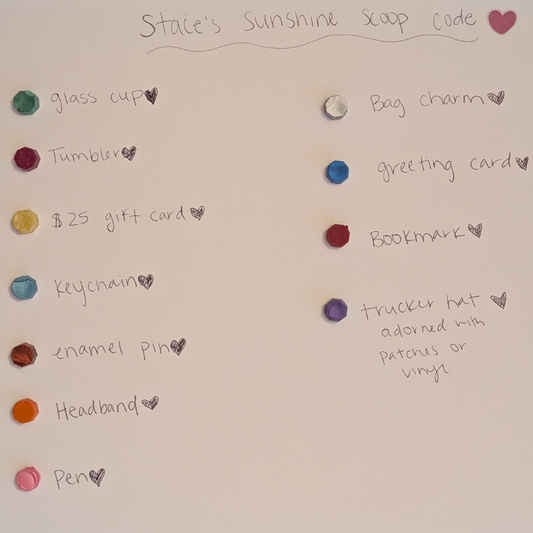 Stacie's Sunshine Scoop code
glass cup
Tumbler
$25 gift card
keychain
enamel pin
Headband
Pen
Bag charm
greeting card
Bookmark
trucker hat
adorned with
patches or
vinyl